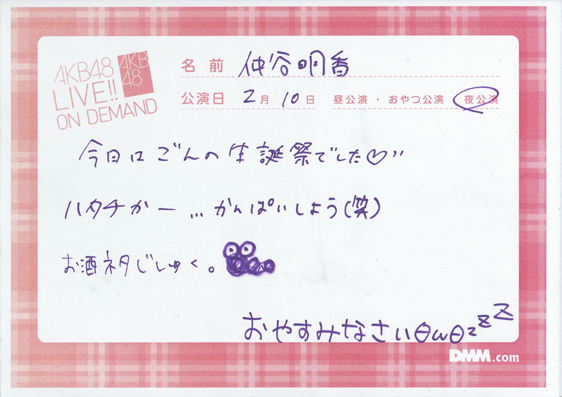 AKB48
LIVE!!
ON DEMAND
AKB
48
名前 仲谷明香
公演日 2月10日 昼公演・おやつ公演・夜公演
今日はごんの生誕祭でした♡''
ハタチかー…かんぱいしよう(笑)
お酒ネタじしゅく。
おやすみなさいΘωΘzzZZ
DMM.com